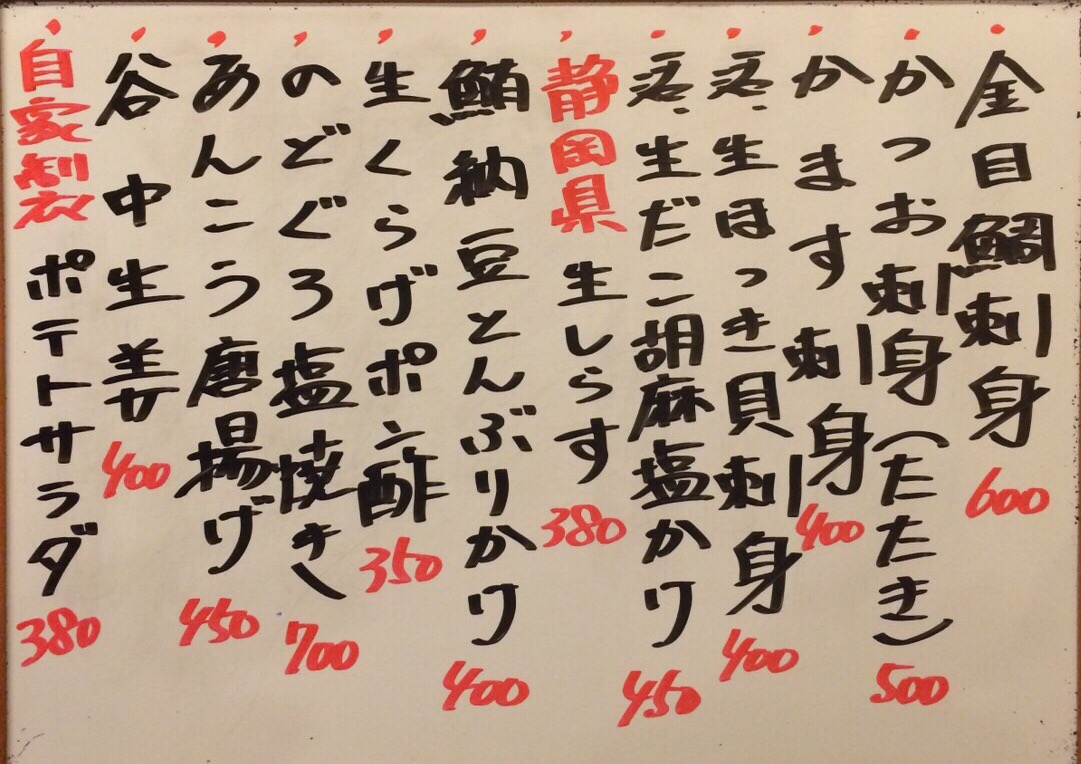 金目鯛刺身 600
かつお刺身(たたき) 500
かます刺身 400
生ほっき貝刺身 400
生だこ胡麻塩かけ 450
静岡県 生しらす 380
鮪納豆とんぶりかけ 400
生くらげポン酢 350
のどぐろ塩焼き 700
あんこう唐揚げ 450
谷中生姜 400
自家製 ポテトサラダ 380